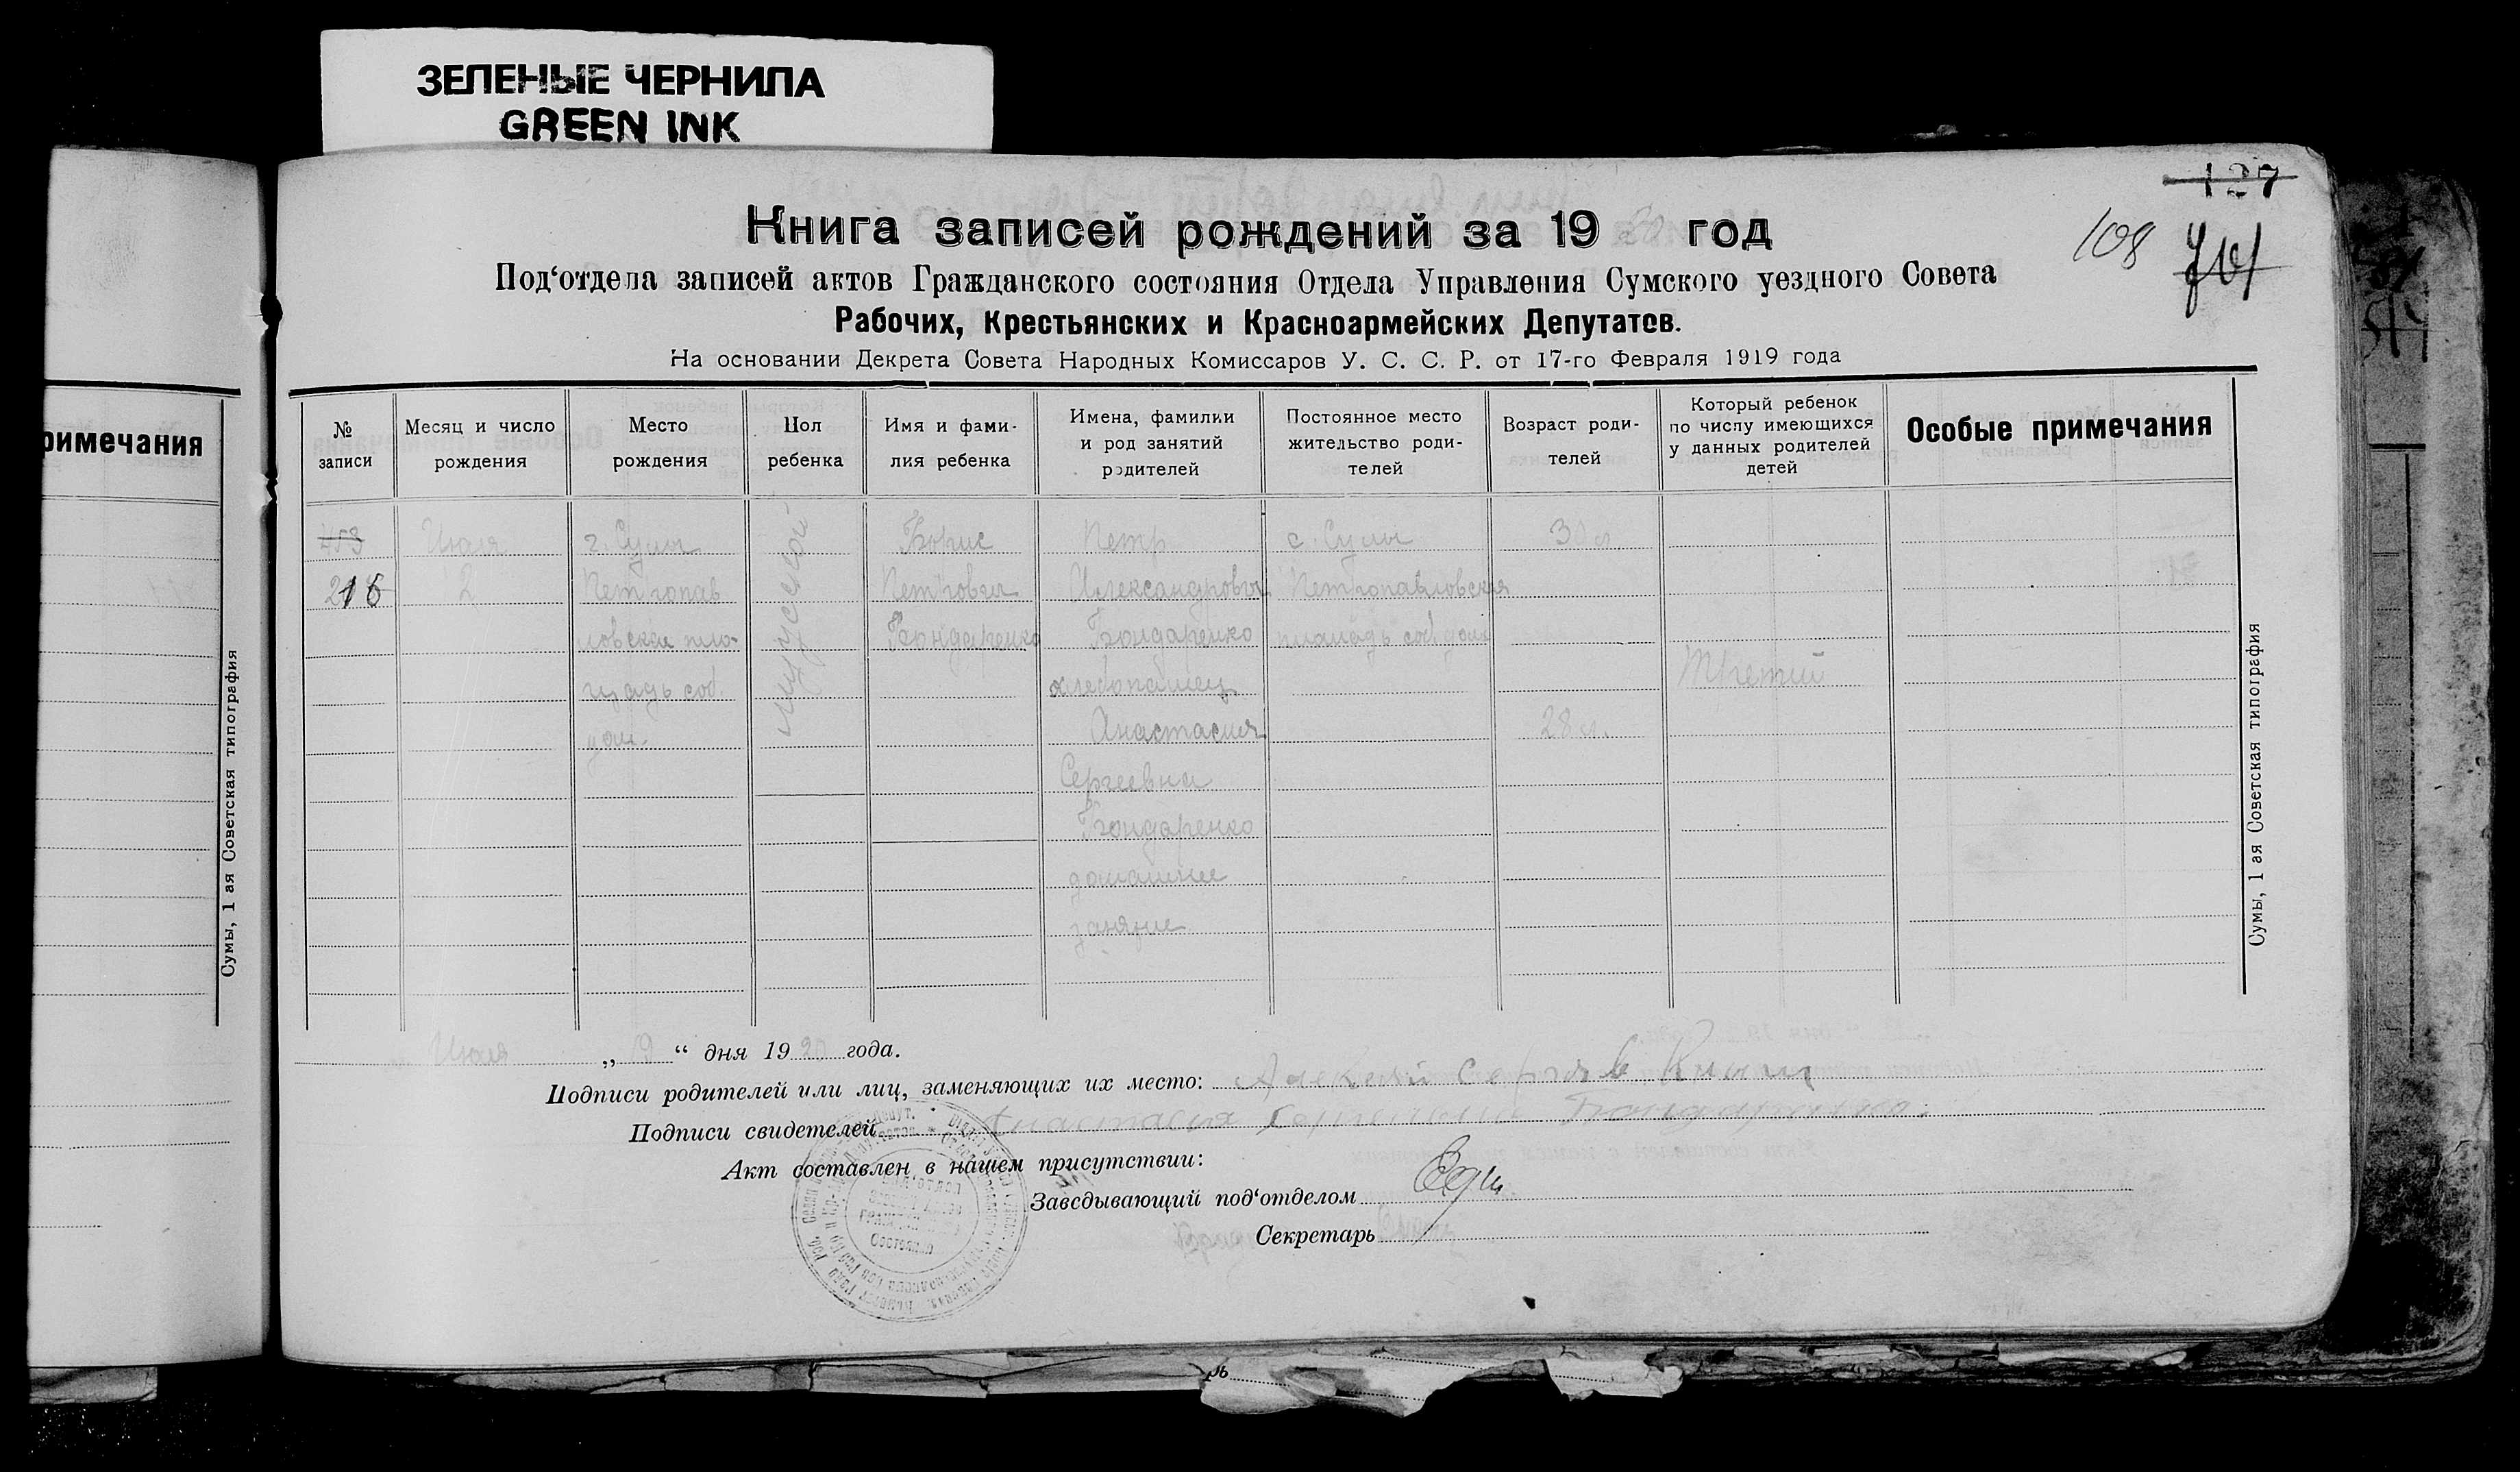 ЗЕЛЕНЫЕ ЧЕРНИЛА
GREEN INK
127
108
Книга записей рождений за 1920 год
Под‘отдела записей актов Гражданского состояния Отдела Управления Сумского уездного Совета
Рабочих, Крестьянских и Красноармейских Депутатов.
На основании Декрета Совета Народных Комиссаров У. С. С. Р. от 17-го Февраля 1919 года
римечания
Сумы, 1 ая Советская типография
№ записи
Месяц и число рождения
Место рождения
Пол ребенка
Имя и фами-
лия ребенка
Имена, фамилии
и род занятий
родителей
Постоянное место
жительство роди-
телей
Возраст роди-
телей
Который ребенок
по числу имеющихся
у данных родителей
детей
Особые примечания
453
Июля
2
г. Сумы
Петропав
ловская пло-
щадь соб.
дом.
мужской
Борис
Петрович
Бондаренко
Петр
Александрович
Бондаренко
хлебопашец
Анастасия
Сергеевна
Бондаренко
домашнее
занятие
с. Сумы
Петропавловская
площадь соб. дом
28 л.
Третий
Сумы, 1 ая Советская типография
Июля „ 9 “ дня 1920 года.
Подписи родителей или лиц, заменяющих их место: Алексей
Подписи свидетелей Анастасия Бондаренко.
Акт составлен в нашем присутствии:
Заведывающий под‘отделом
Секретарь